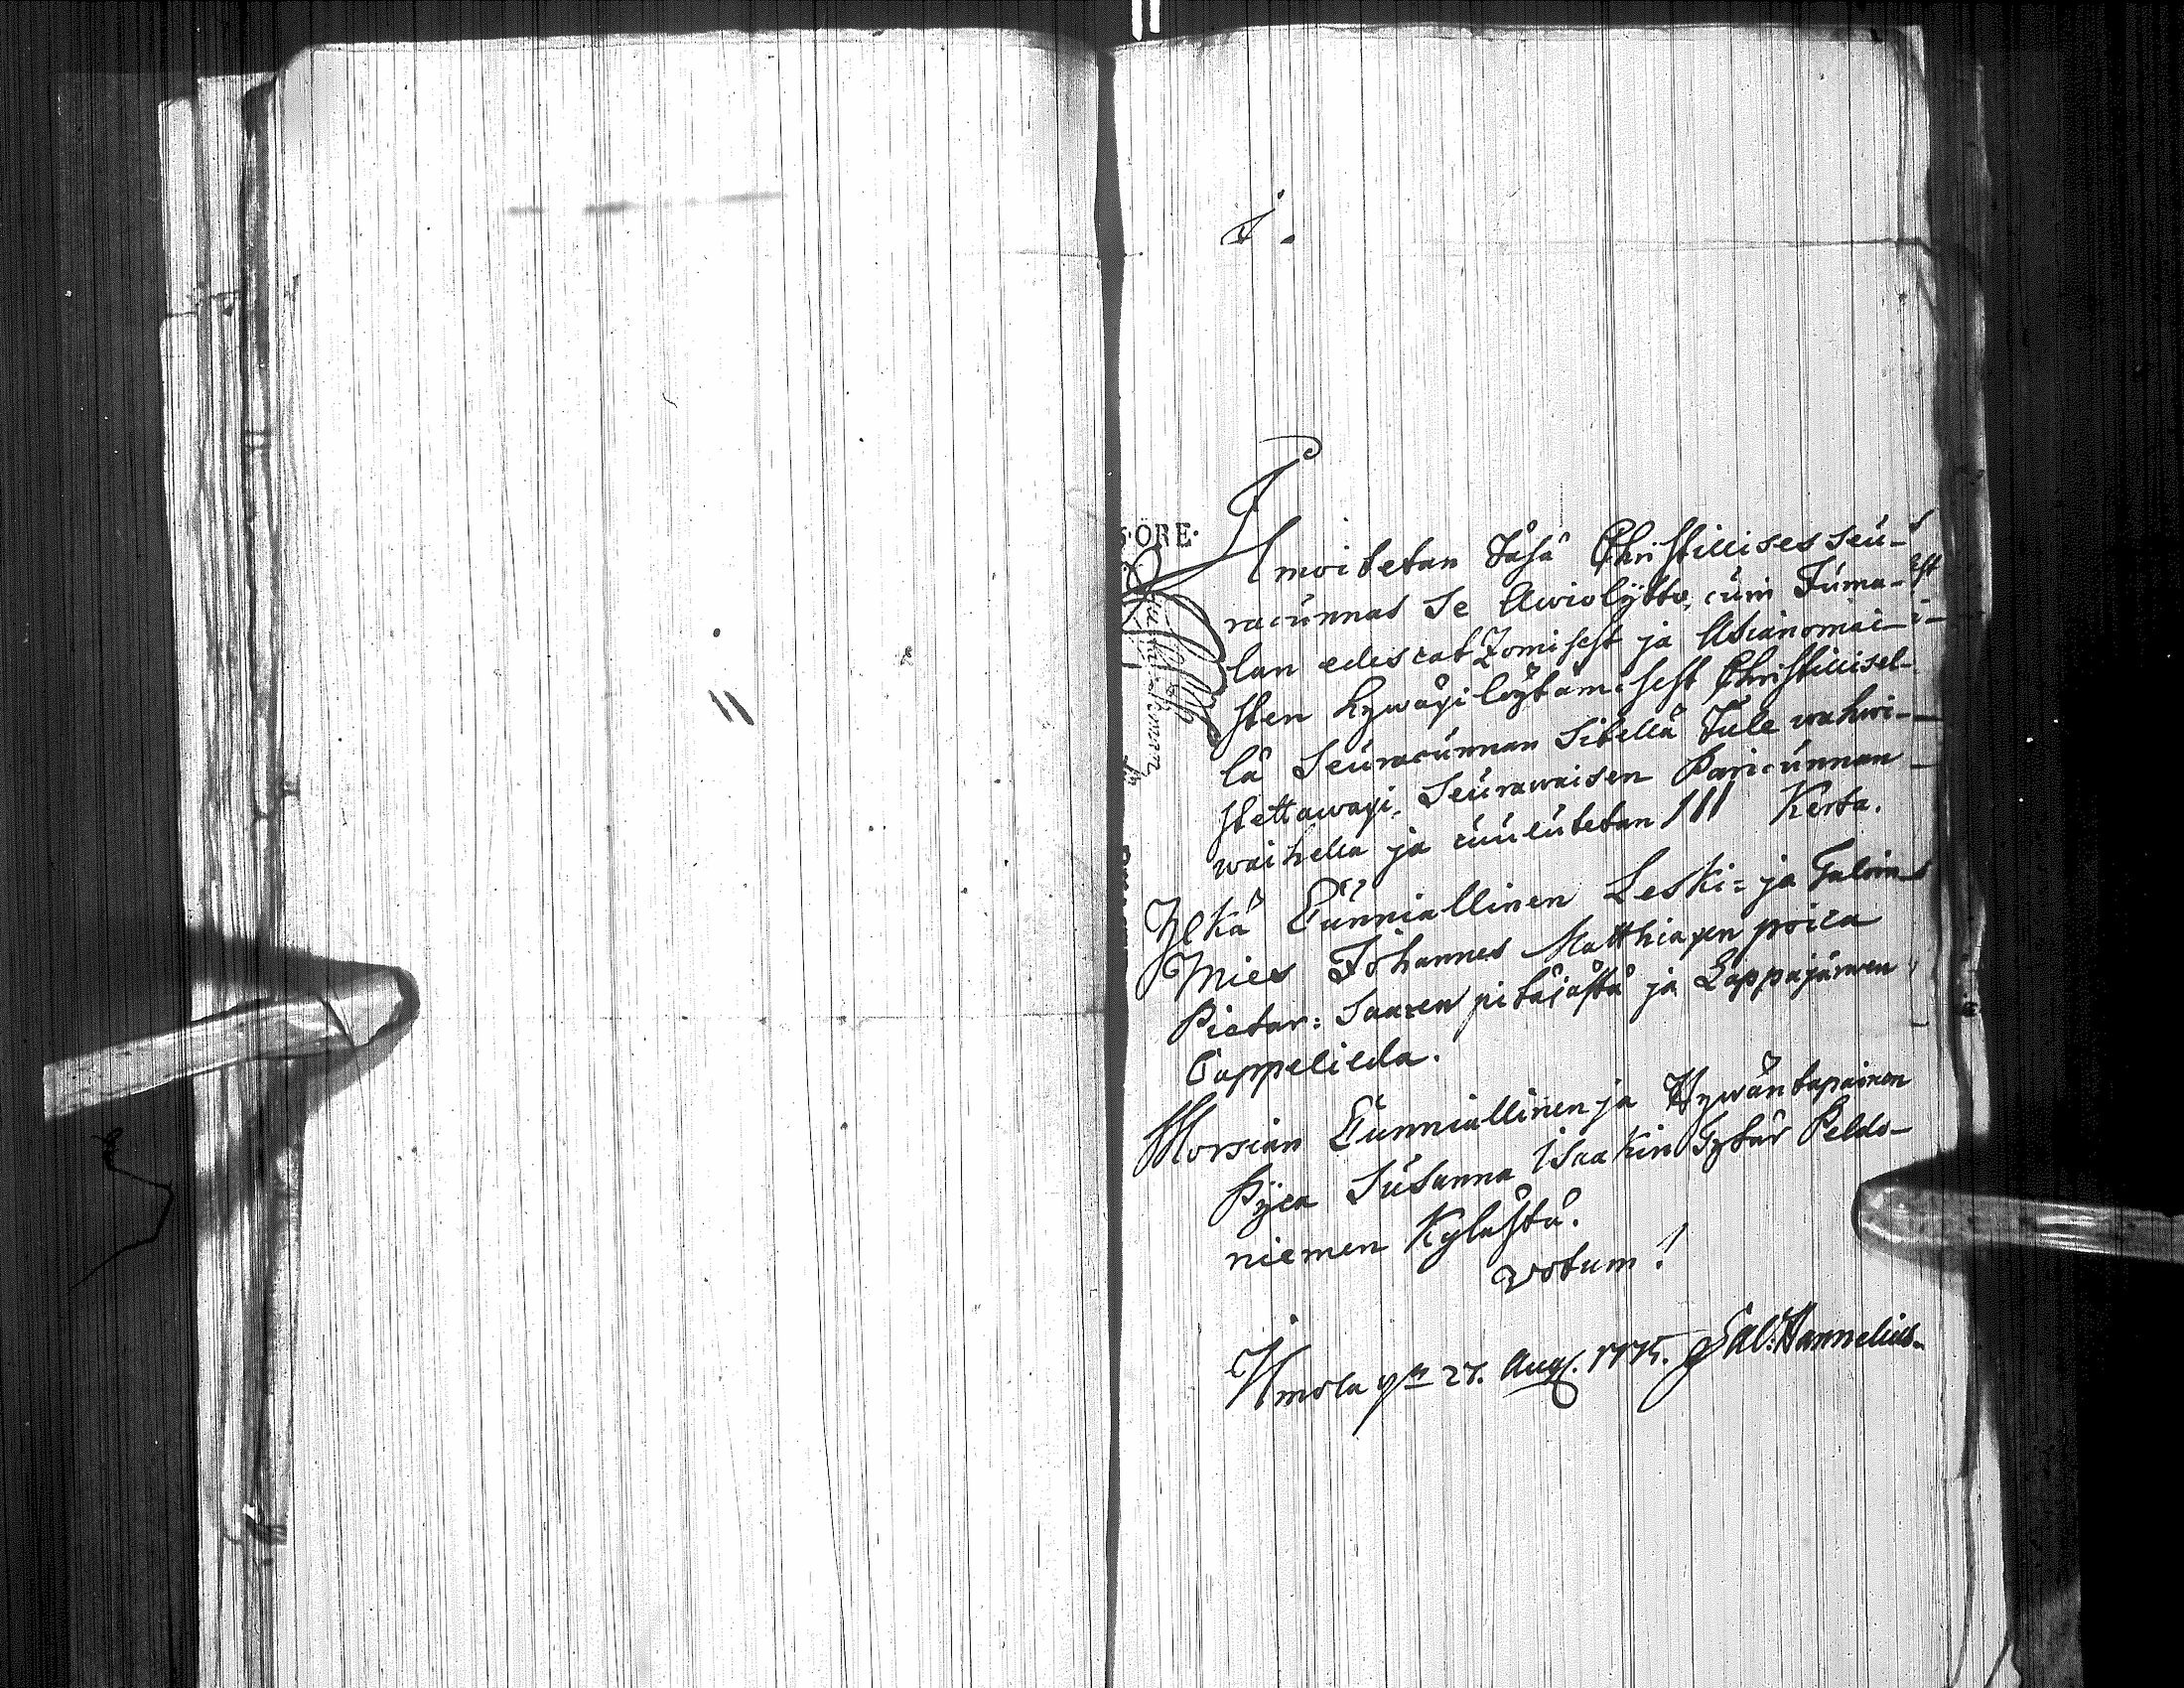 J.
5·ÖRE·
Ilmoitetan Täsä Christillises seu-
racunnas se Awiolÿtto, cuin Juma-
lan edescat Zomisest ja Asianomai-
sten hywäxi löytämisest Christillisel-
lä Seuracunnan Sitellä Tule wahwi-
stettawaxi, Seurawaisen Paricunnan
waihella ja cuulutetan III Kerta.
Ylkä Cunniallinen Leski= ja Talon
Mies Johannes Matthiaxen poica
Pietar: Saaren pitäjästä ja Lappajärwen
Cappelilda.
Morsian Cunniallinen ja Hywäntapainen
Pijca Susanna Isaakin Tytär Peldo-
niemen Kylästä.
Votum!
Ilmola den 27. Aug. 1775. Gab: Hannelius.